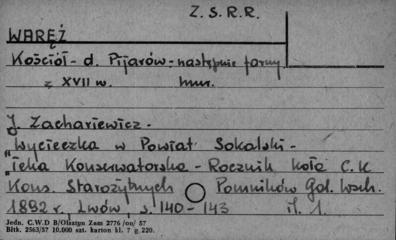 Z. S. R. R.
WARĘŻ
Kościół - d. Pijarów - następnie farny.
z XVII w. mur.
J. Zachariewicz -
"Wycieczka w Powiat Sokalski -
"Teka Konserwatorska - Rocznik koła C. K
Kons. Starożytnych Pomników Gal. Wsch.
1892 r. Lwów s. 140 - 143 il. 1.
Jedn. C.W.D B/Olsztyn Zam 2776 /on/ 57
Błtk. 2563/57 10.000 szt. karton kl. 7 g 220.